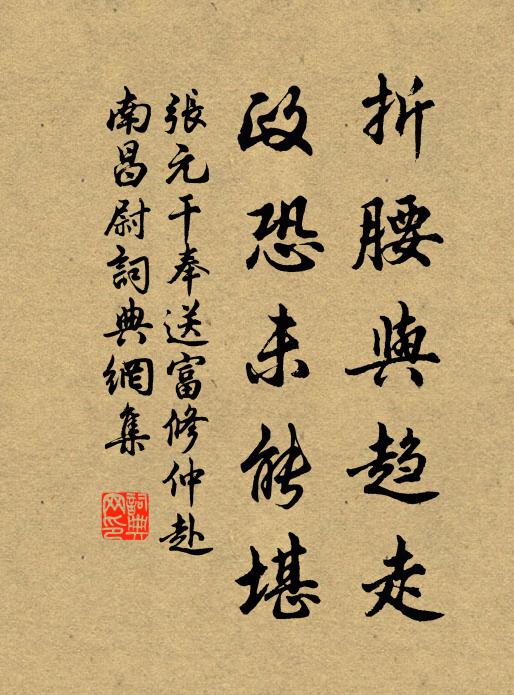 折腰與趋走
政恐未能堪
張元干奉送富修仲赴
南昌尉詞典網集
詞典網印